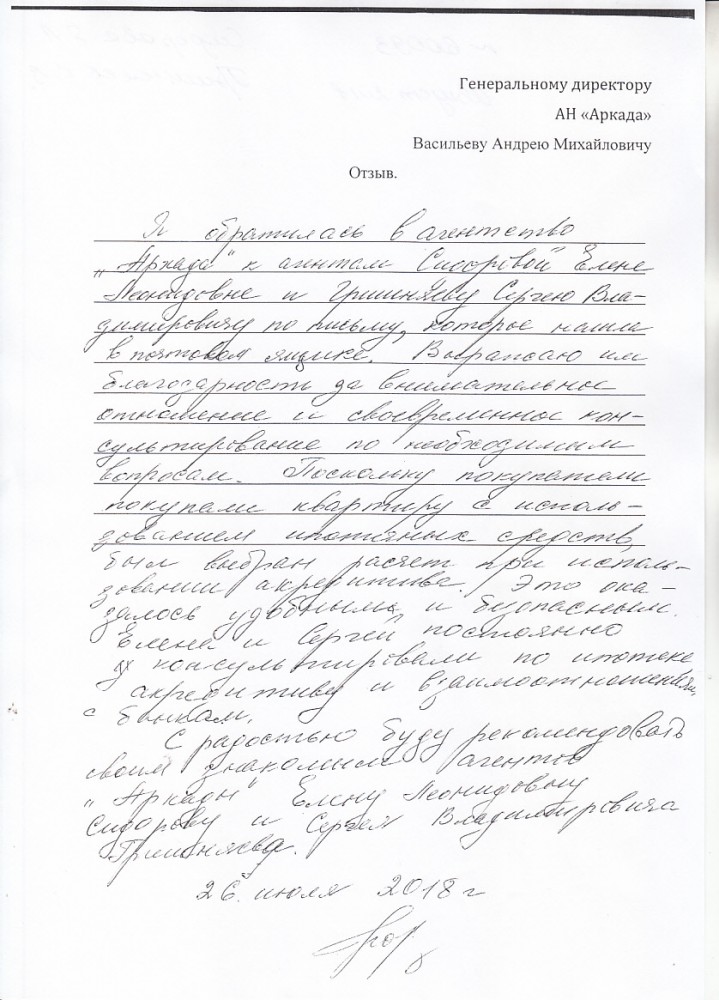 Генеральному директору
АН «Аркада»
Васильеву Андрею Михайловичу
Отзыв.
Я обратилась в агентство
„Аркада" к агентам Сидоровой Елене
Леонидовне и Гришняеву Сергею Вла-
димировичу по письму, которое нашла
в почтовом ящике. Выражаю им
благодарность за внимательное
отношение и своевременное кон-
сультирование по необходимым
вопросам. Поскольку покупатели
покупали квартиру с исполь-
зованием ипотечных средств,
был выбран расчет при исполь-
зовании акредитива. Это ока-
залось удобным и безопасным.
Елена и Сергей постоянно
консультировали по ипотеке
акредитиву и взаимоотношениям
с банкам.
С радостью буду рекомендовать
своим знакомым агентов
„Аркады" Елену Леонидовну
Сидорову и Сергея Владимировича
Гришняева.
26 июля 2018 г